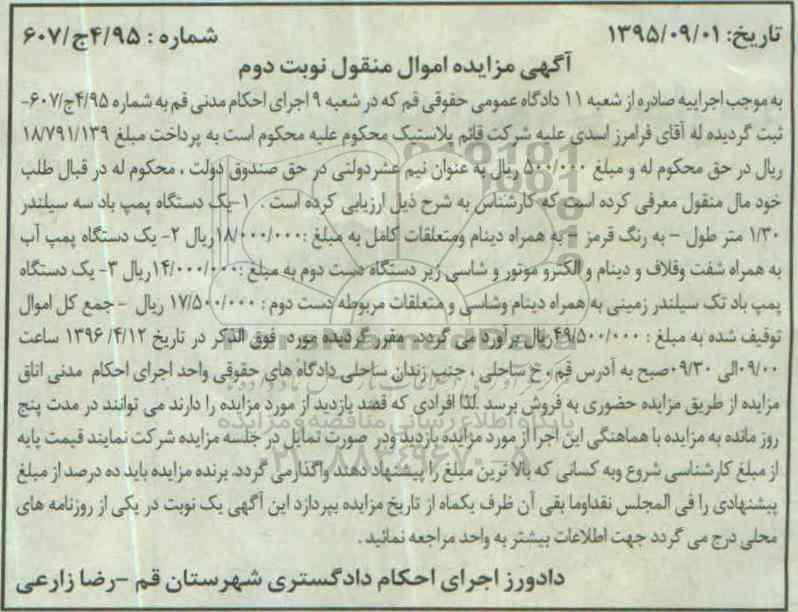 تاریخ: ۱۳۹۵/۰۹/۰۱
شماره: ۴/۹۵ج/۶۰۷
آگهی مزایده اموال منقول نوبت دوم
به موجب اجراییه صادره از شعبه ۱۱ دادگاه عمومی حقوقی قم که در شعبه ۹ اجرای احکام مدنی قم به شماره ۴/۹۵ج/۶۰۷-
ثبت گردیده له آقای فرامرز اسدی علیه شرکت قائم پلاستیک محکوم علیه محکوم است به پرداخت مبلغ ۱۸/۷۹۱/۱۳۹
ریال در حق محکوم له و مبلغ ۵۰۰/۰۰۰ ریال به عنوان نیم عشردولتی در حق صندوق دولت ، محکوم له در قبال طلب
خود مال منقول معرفی کرده است که کارشناس به شرح ذیل ارزیابی کرده است . ۱-یک دستگاه پمپ باد سه سیلندر
۱/۳۰ متر طول – به رنگ قرمز – به همراه دینام ومتعلقات کامل به مبلغ :۱۸/۰۰۰/۰۰۰ریال ۲- یک دستگاه پمپ آب
به همراه شفت وقلاف و دینام و الکترو موتور و شاسی زیر دستگاه دست دوم به مبلغ :۱۴/۰۰۰/۰۰۰ریال ۳- یک دستگاه
پمپ باد تک سیلندر زمینی به همراه دینام وشاسی و متعلقات مربوطه دست دوم : ۱۷/۵۰۰/۰۰۰ ریال -جمع کل اموال
توقیف شده به مبلغ : ۴۹/۵۰۰/۰۰۰ریال برآورد می گردد. مقرر گردیده مورد فوق الذکر در تاریخ ۱۳۹۶ /۴/۱۲ ساعت
۰۹/۰۰الی ۰۹/۳۰صبح به آدرس قم ، خ ساحلی ، جنب زندان ساحلی دادگاه های حقوقی واحد اجرای احکام مدنی اتاق
مزایده از طریق مزایده حضوری به فروش برسد .لذا افرادی که قصد بازدید از مورد مزایده را دارند می توانند در مدت پنج
روز مانده به مزایده با هماهنگی این اجرا از مورد مزایده بازدید ودر صورت تمایل در جلسه مزایده شرکت نمایند قیمت پایه
از مبلغ کارشناسی شروع وبه کسانی که بالا ترین مبلغ را پیشنهاد دهند واگذارمی گردد. برنده مزایده باید ده درصد از مبلغ
پیشنهادی را فی المجلس نقداوما بقی آن ظرف یکماه از تاریخ مزایده بپردازد این آگهی یک نوبت در یکی از روزنامه های
محلی درج می گردد جهت اطلاعات بیشتر به واحد مراجعه نمائید .
دادورز اجرای احکام دادگستری شهرستان قم –رضا زارعی
ParsNamadData
پایگاه اطلاع رسانی مناقصه و مزایده
۰۲۱-۸۸۳۴۹۶۷۰-۸